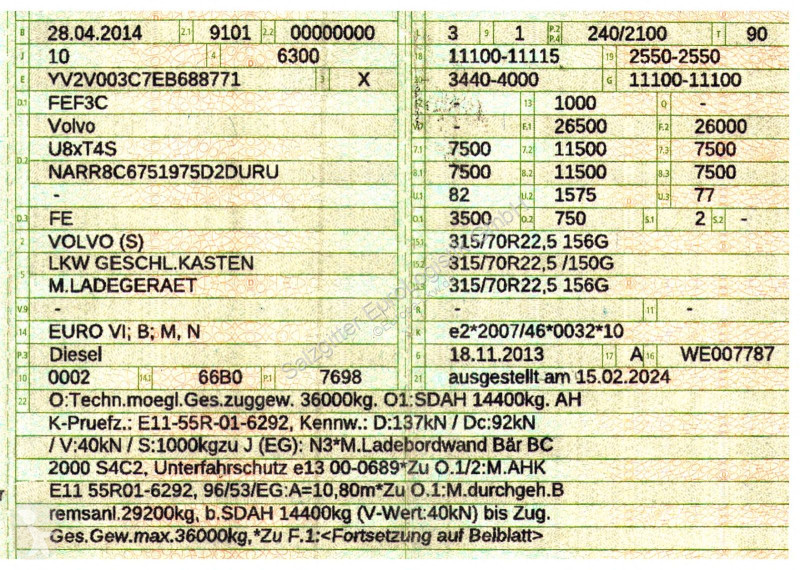 B 28.04.2014 2.1 9101 2.2 00000000
J 10 4 6300
E YV2V003C7EB688771 3 X
D.1 FEF3C
Volvo
U8xT4S
D.2 NARR8C6751975D2DURU
-
D.3 FE
2 VOLVO (S)
5 LKW GESCHL.KASTEN
M.LADEGERAET
V.9 -
14 EURO VI; B; M, N
P.3 Diesel
10 0002 14.1 66B0 P.1 7698
L 3 9 1 P.2 P.4 240/2100 T 90
18 11100-11115 19 2550-2550
20 3440-4000 G 11100-11100
12 - 13 1000 Q -
V.7 - F.1 26500 F.2 26000
7.1 7500 7.2 11500 7.3 7500
8.1 7500 8.2 11500 8.3 7500
U.1 82 U.2 1575 U.3 77
O.1 3500 O.2 750 S.1 2 S.2 -
15.1 315/70R22,5 156G
15.2 315/70R22,5 /150G
15.3 315/70R22,5 156G
R - 11 -
K e2*2007/46*0032*10
6 18.11.2013 17 A 16 WE007787
21 ausgestellt am 15.02.2024
22 O:Techn.moegl.Ges.zuggew. 36000kg. O1:SDAH 14400kg. AH
K-Pruefz.: E11-55R-01-6292, Kennw.: D:137kN / Dc:92kN
/ V:40kN / S:1000kgzu J (EG): N3*M.Ladebordwand Bär BC
2000 S4C2, Unterfahrschutz e13 00-0689*Zu O.1/2:M.AHK
E11 55R01-6292, 96/53/EG:A=10,80m*Zu O.1:M.durchgeh.B
remsanl.29200kg, b.SDAH 14400kg (V-Wert:40kN) bis Zug.
Ges.Gew.max.36000kg,*Zu F.1:<Fortsetzung auf Beiblatt>
r